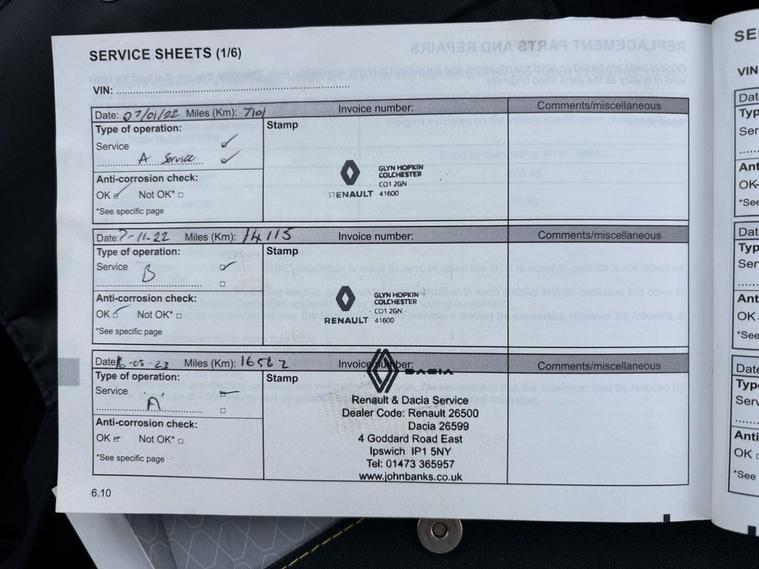 SERVICE SHEETS (1/6)
VIN:
Date: 07/01/22 Miles (Km): 7101 Invoice number: Comments/miscellaneous
Type of operation: Stamp
Service
A Service
Anti-corrosion check:
OK Not OK*
*See specific page
GLYN HOPKIN
COLCHESTER
CO1 2GN
RENAULT 41600
Date: 7-11-22 Miles (Km): 14115 Invoice number: Comments/miscellaneous
Type of operation: Stamp
Service
B
Anti-corrosion check:
OK Not OK*
*See specific page
GLYN HOPKIN
COLCHESTER
CO1 2GN
RENAULT 41600
Date -05-23 Miles (Km): Invoice number: Comments/miscellaneous
Type of operation: Stamp
Service
'A'
Anti-corrosion check:
OK Not OK*
*See specific page
DACIA
Renault & Dacia Service
Dealer Code: Renault 26500
Dacia 26599
4 Goddard Road East
Ipswich IP1 5NY
Tel: 01473 365957
www.johnbanks.co.uk
6.10
SE
VIN
Dat
Typ
Ser
Ant
OK
*See
Dat
Typ
Ser
Ant
OK
*See
Date
Type
Serv
Anti
OK
*See